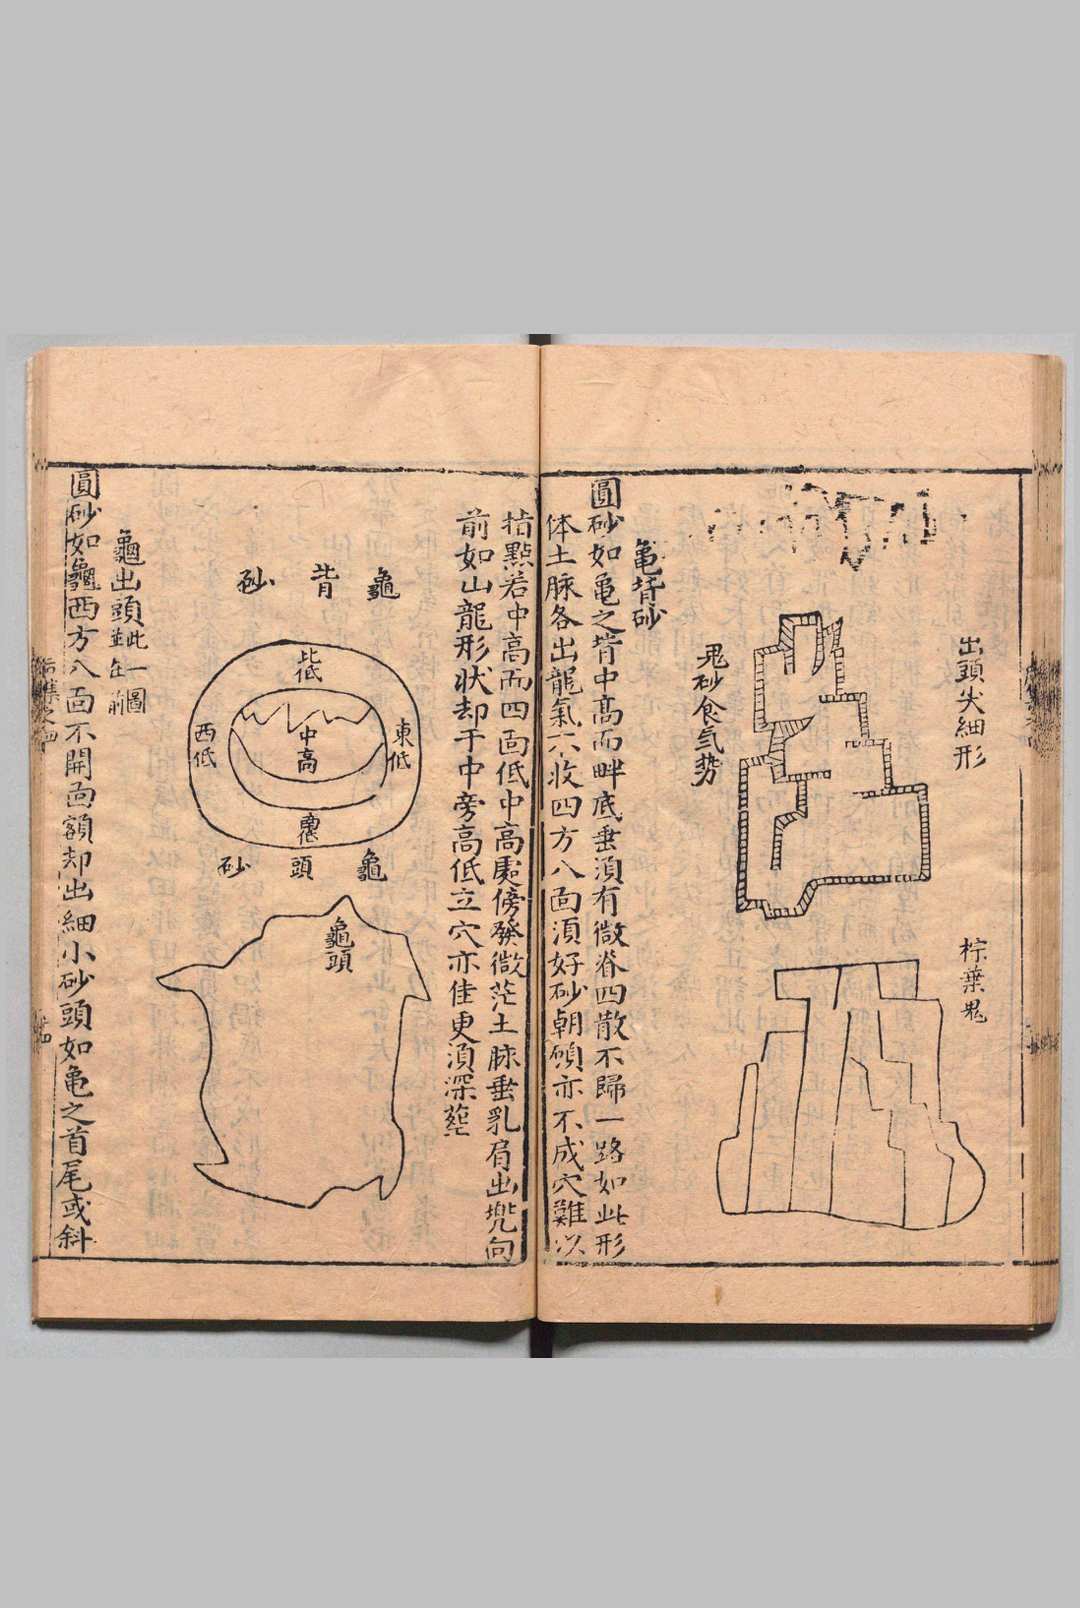 出頭尖細形
棕葉鬼
鬼砂食氣勢
亀背砂
圓砂如亀之背中高而畔底垂須有微脊四散不歸一路如此形
体土脉各出龍氣不收四方八面須好砂朝顧亦不成穴難以
指點若中高而四面低中高處傍發微茫土脉垂乳肩出兠向
前如山龍形状却于中旁高低立穴亦佳更須深葬
龜背砂
北低
東低
中高
西低
南低
龜頭砂
龜頭
龜出頭此一圖並在前
圓砂如龜西方八面不開面額却出細小砂頭如亀之首尾或斜
后集之四